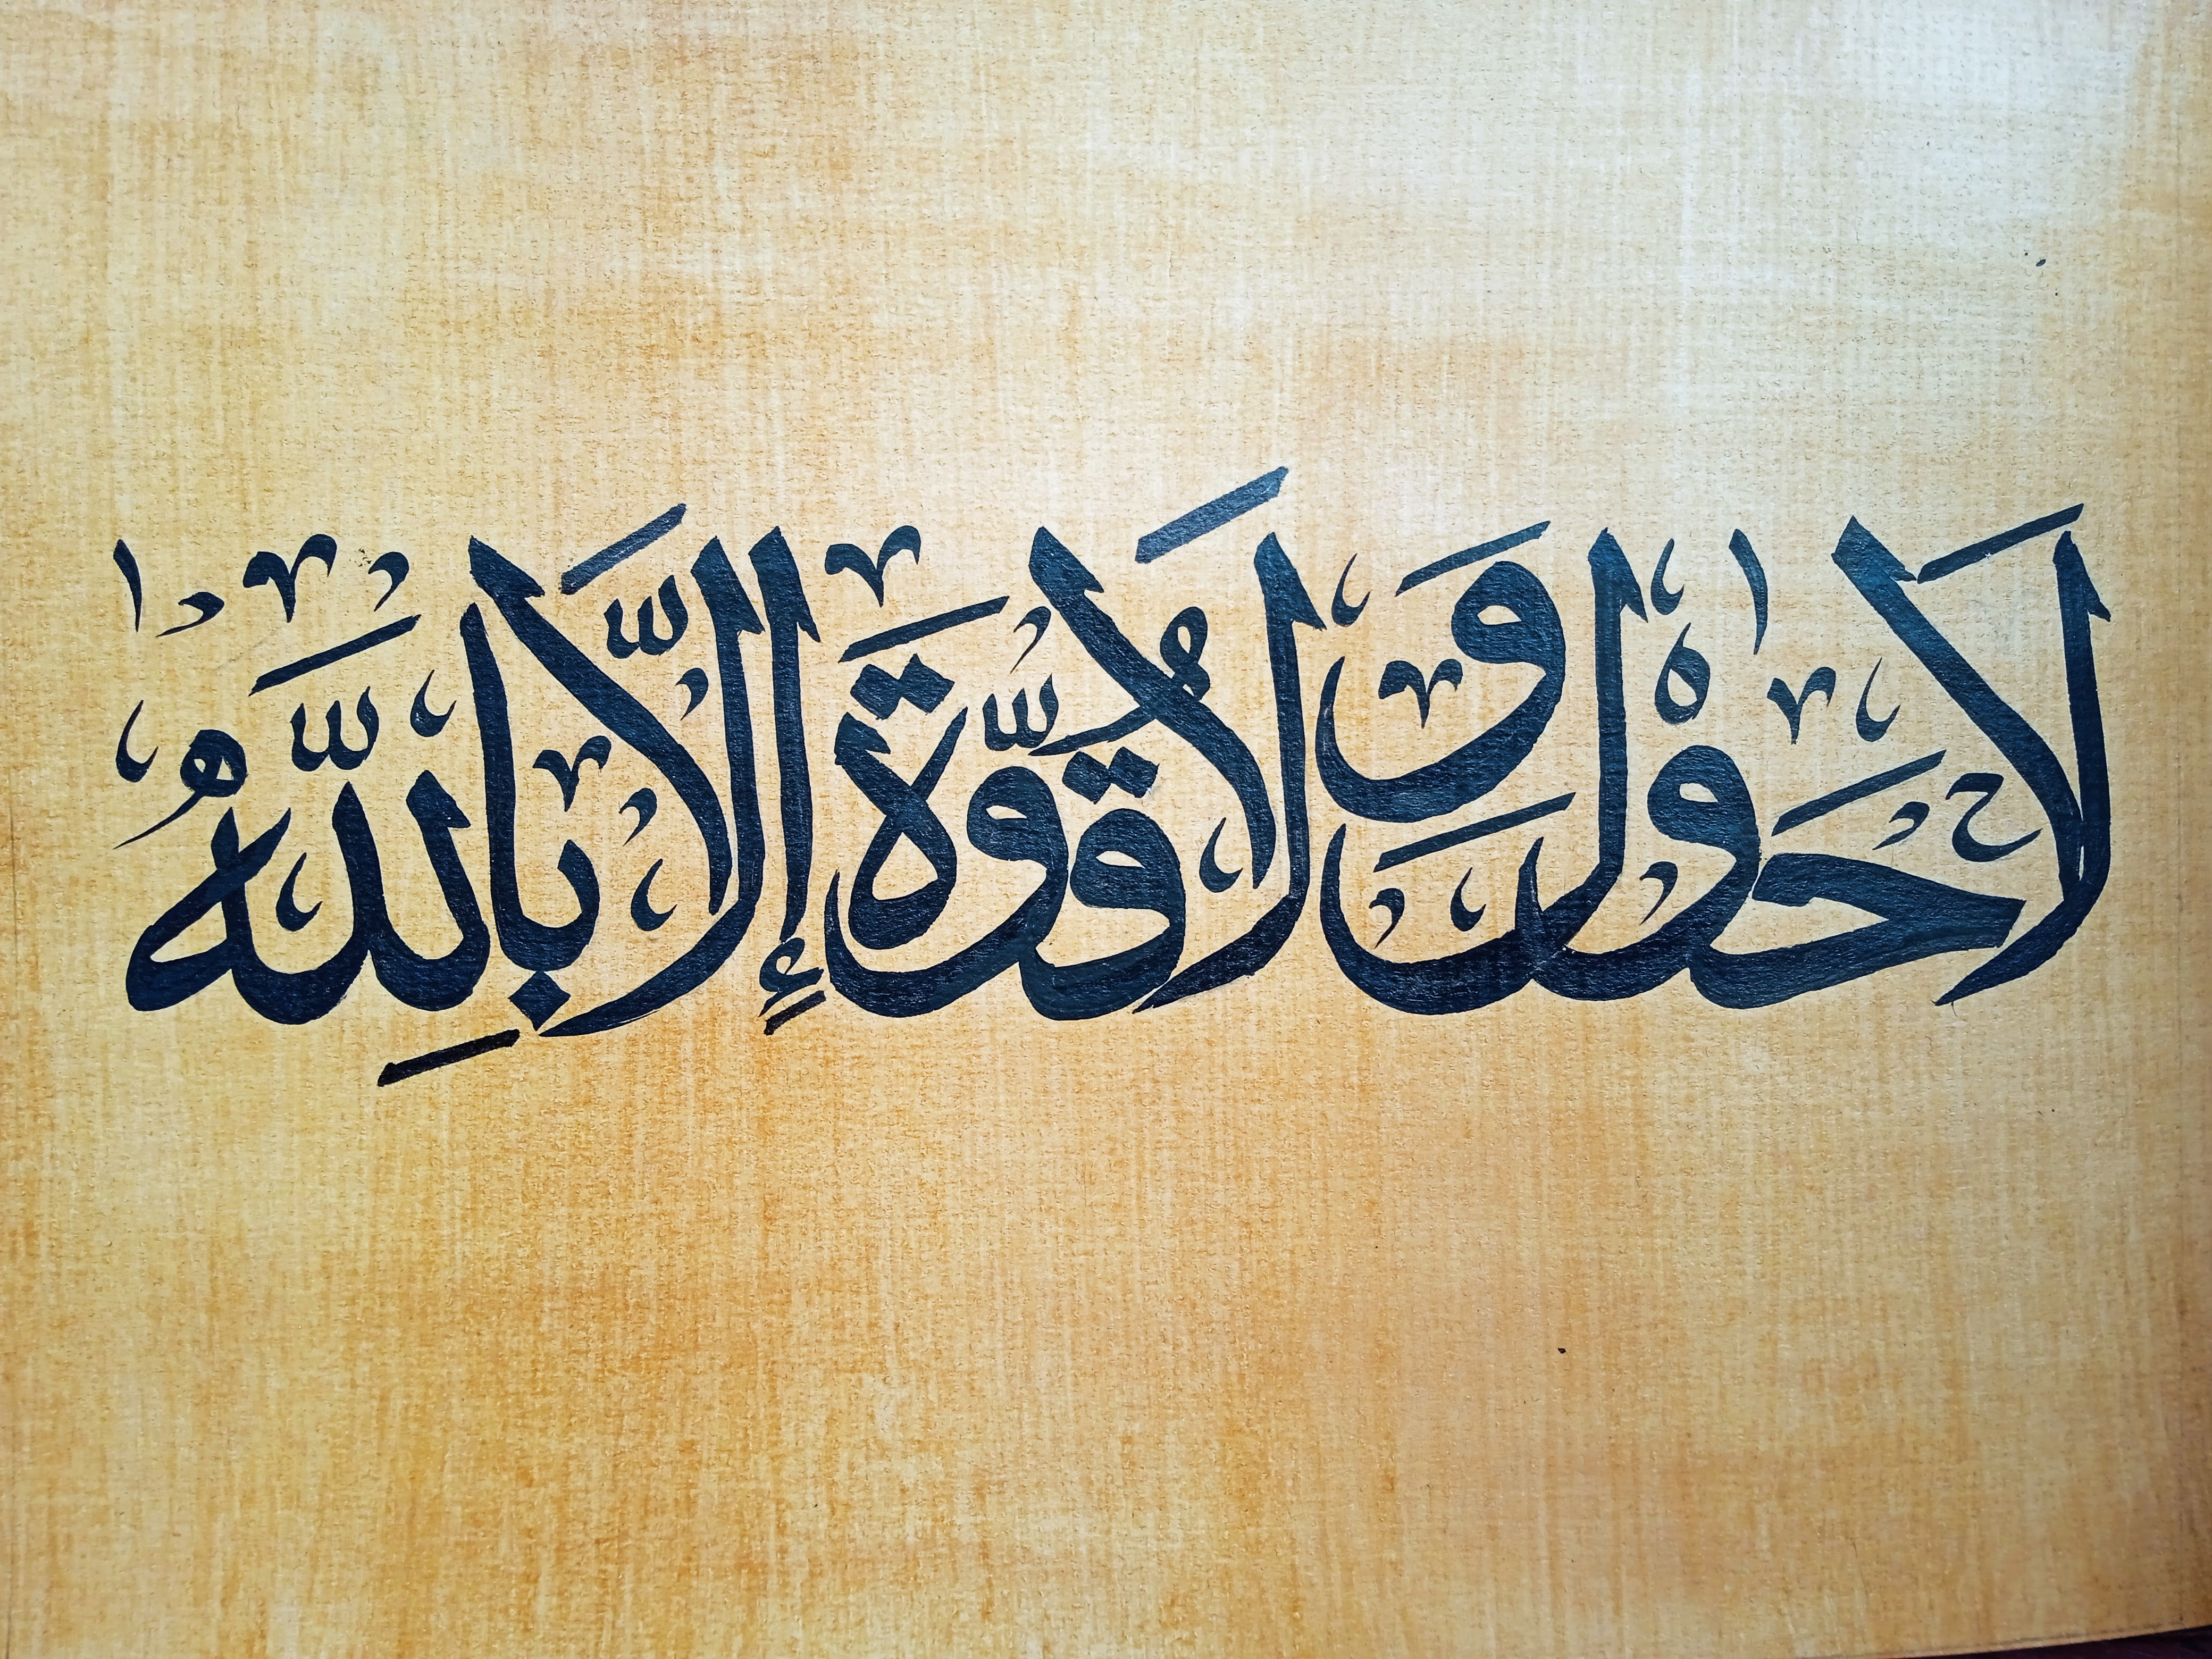 لَا حَوْلَ وَلَا قُوَّةَ إِلَّا بِاللَّهُ